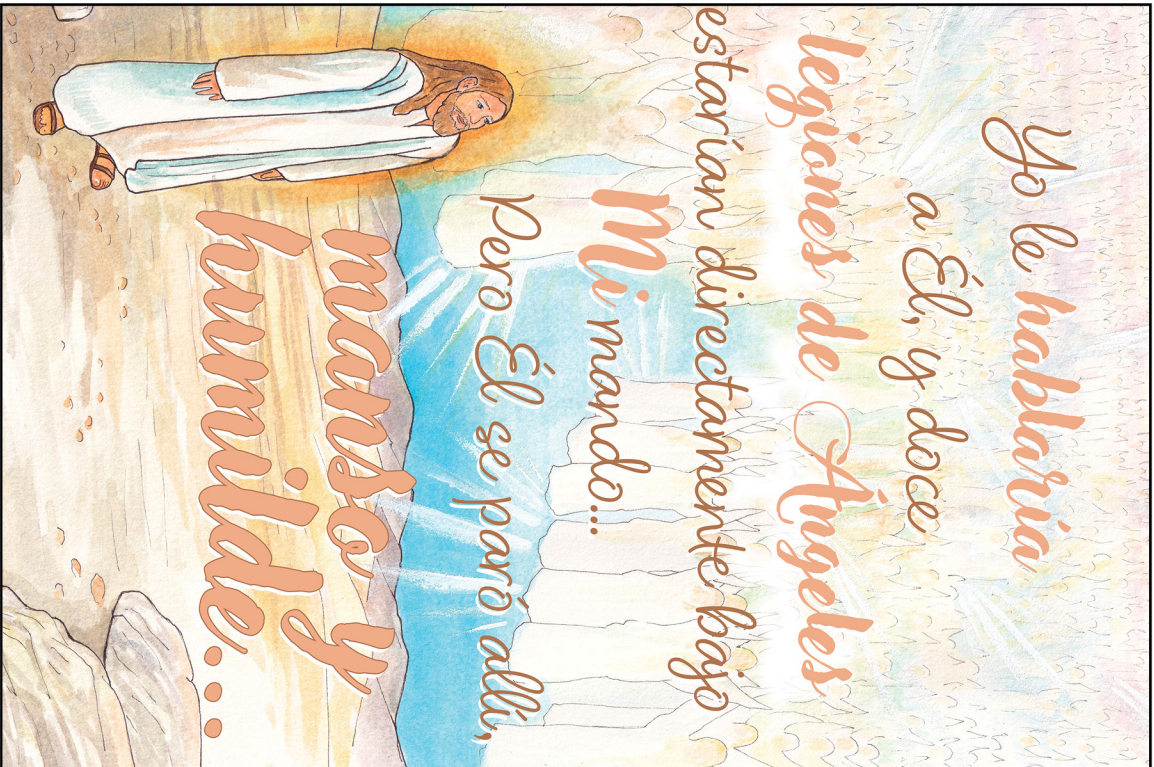 Yo le hablaría
a Él, y doce
legiones de Ángeles
estarían directamente bajo
Mi mando...
Pero Él se paró allí,
manso y
humilde...